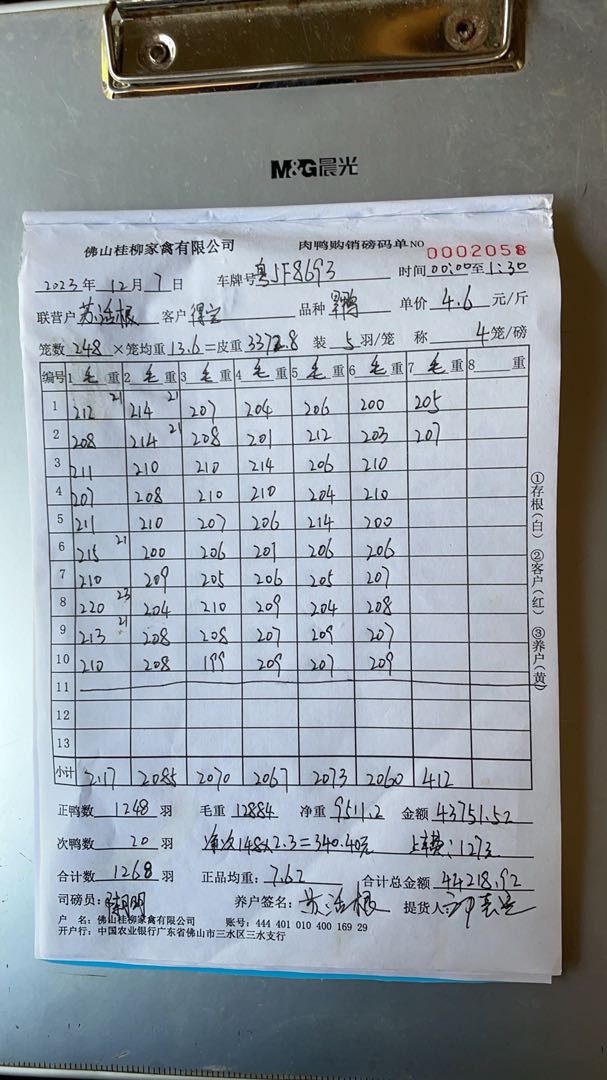 M&G晨光
佛山桂柳家禽有限公司 肉鸭购销磅码单 NO 0002058
2023年 12月 7日 车牌号 粤JF8693 时间 00:00至1:30
联营户 苏活根 客户 品种 单价 4.6 元/斤
笼数 248 ×笼均重 13.6 =皮重 3372.8 装 5 羽/笼 称 4 笼/磅
编号 1 毛重 2 毛重 3 毛重 4 毛重 5 毛重 6 毛重 7 毛重 8 重
1 212 21 214 21 207 204 206 200 205
2 208 214 21 208 201 212 203 207
3 211 210 210 214 206 210
4 207 208 210 210 204 210
5 211 210 207 206 214 200
6 215 21 200 206 201 206 206
7 210 209 205 206 205 207
8 220 23 204 210 209 204 208
9 213 21 208 208 207 209 207
10 210 208 199 209 207 209
11
12
13
小计 2117 2085 2070 2067 2073 2060 412
①存根(白) ②客户(红) ③养户(黄)
正鸭数 1248 羽 毛重 12884 净重 9511.2 金额 43751.52
次鸭数 20 羽 148×2.3=340.40元 上车费:1273
合计数 1268 羽 正品均重: 7.62 合计总金额 44218.92
司磅员: 养户签名: 苏活根 提货人
户 名: 佛山桂柳家禽有限公司 账号: 444 401 010 400 169 29
开户行: 中国农业银行广东省佛山市三水区三水支行